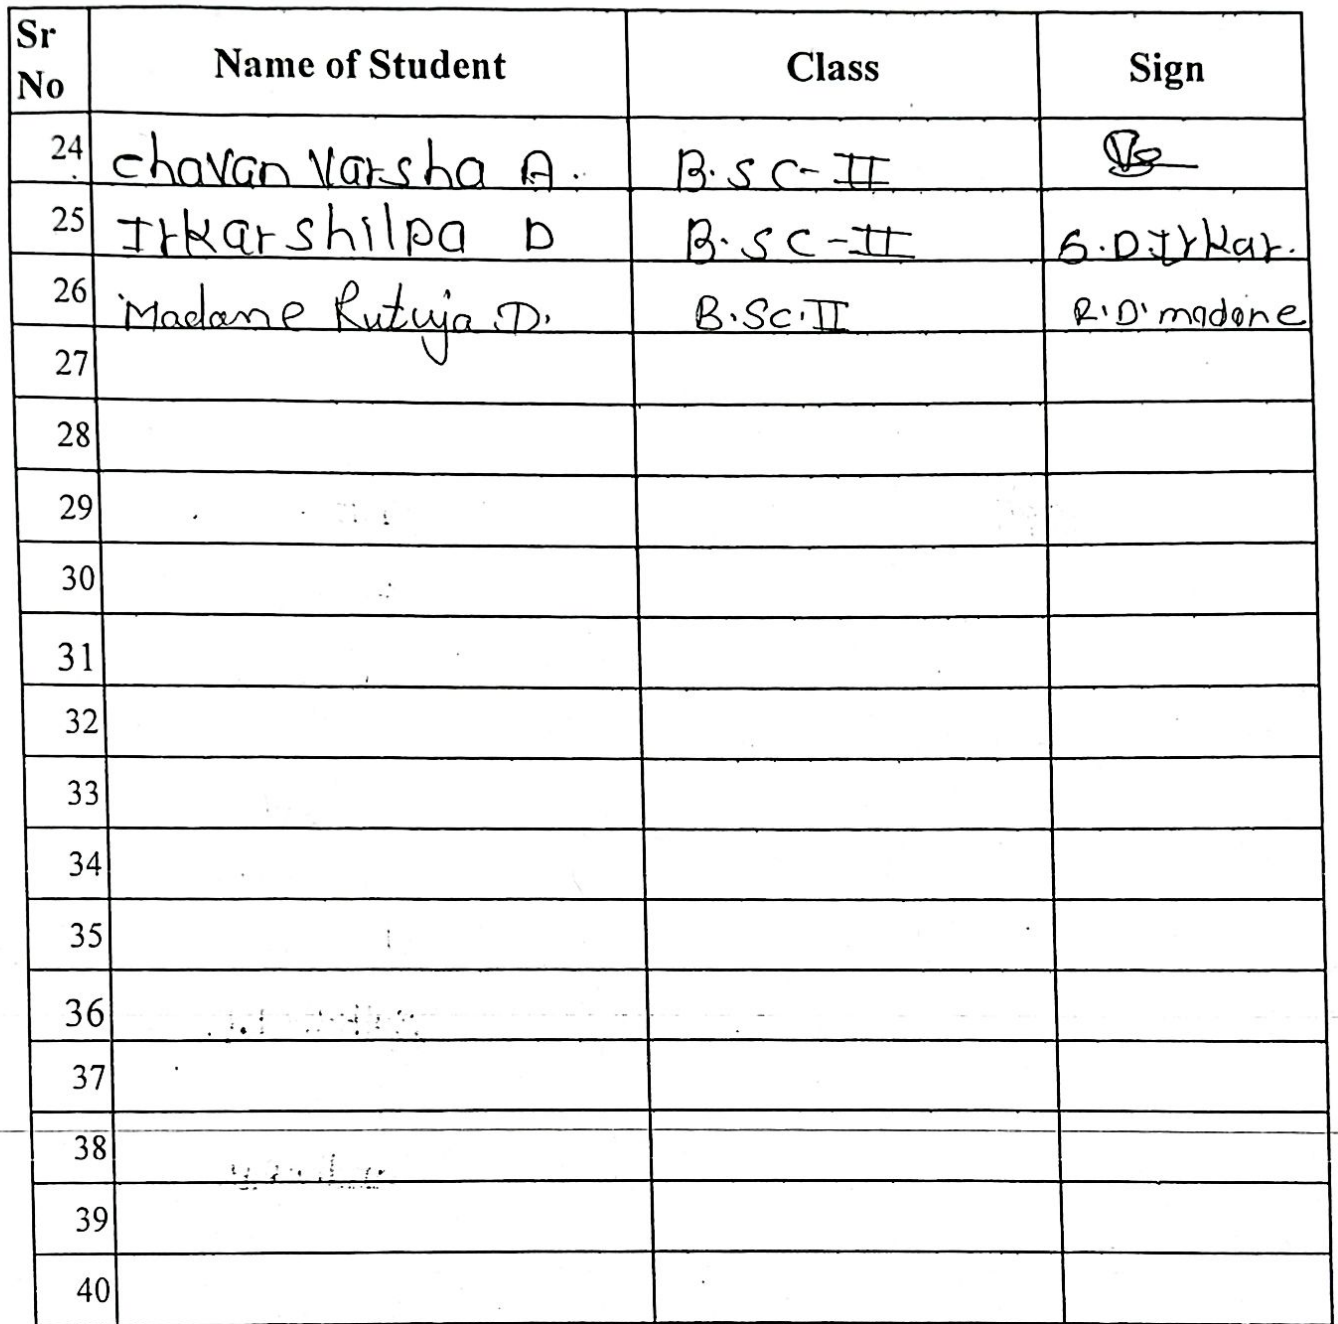 Sr No Name of Student Class Sign
24 Chavan Varsha A. B.SC-II
25 Irkar Shilpa D B.SC-II S.D Irkar.
26 Madane Rutuja D. B.Sc.II R.D. madane
27
28
29
30
31
32
33
34
35
36
37
38
39
40